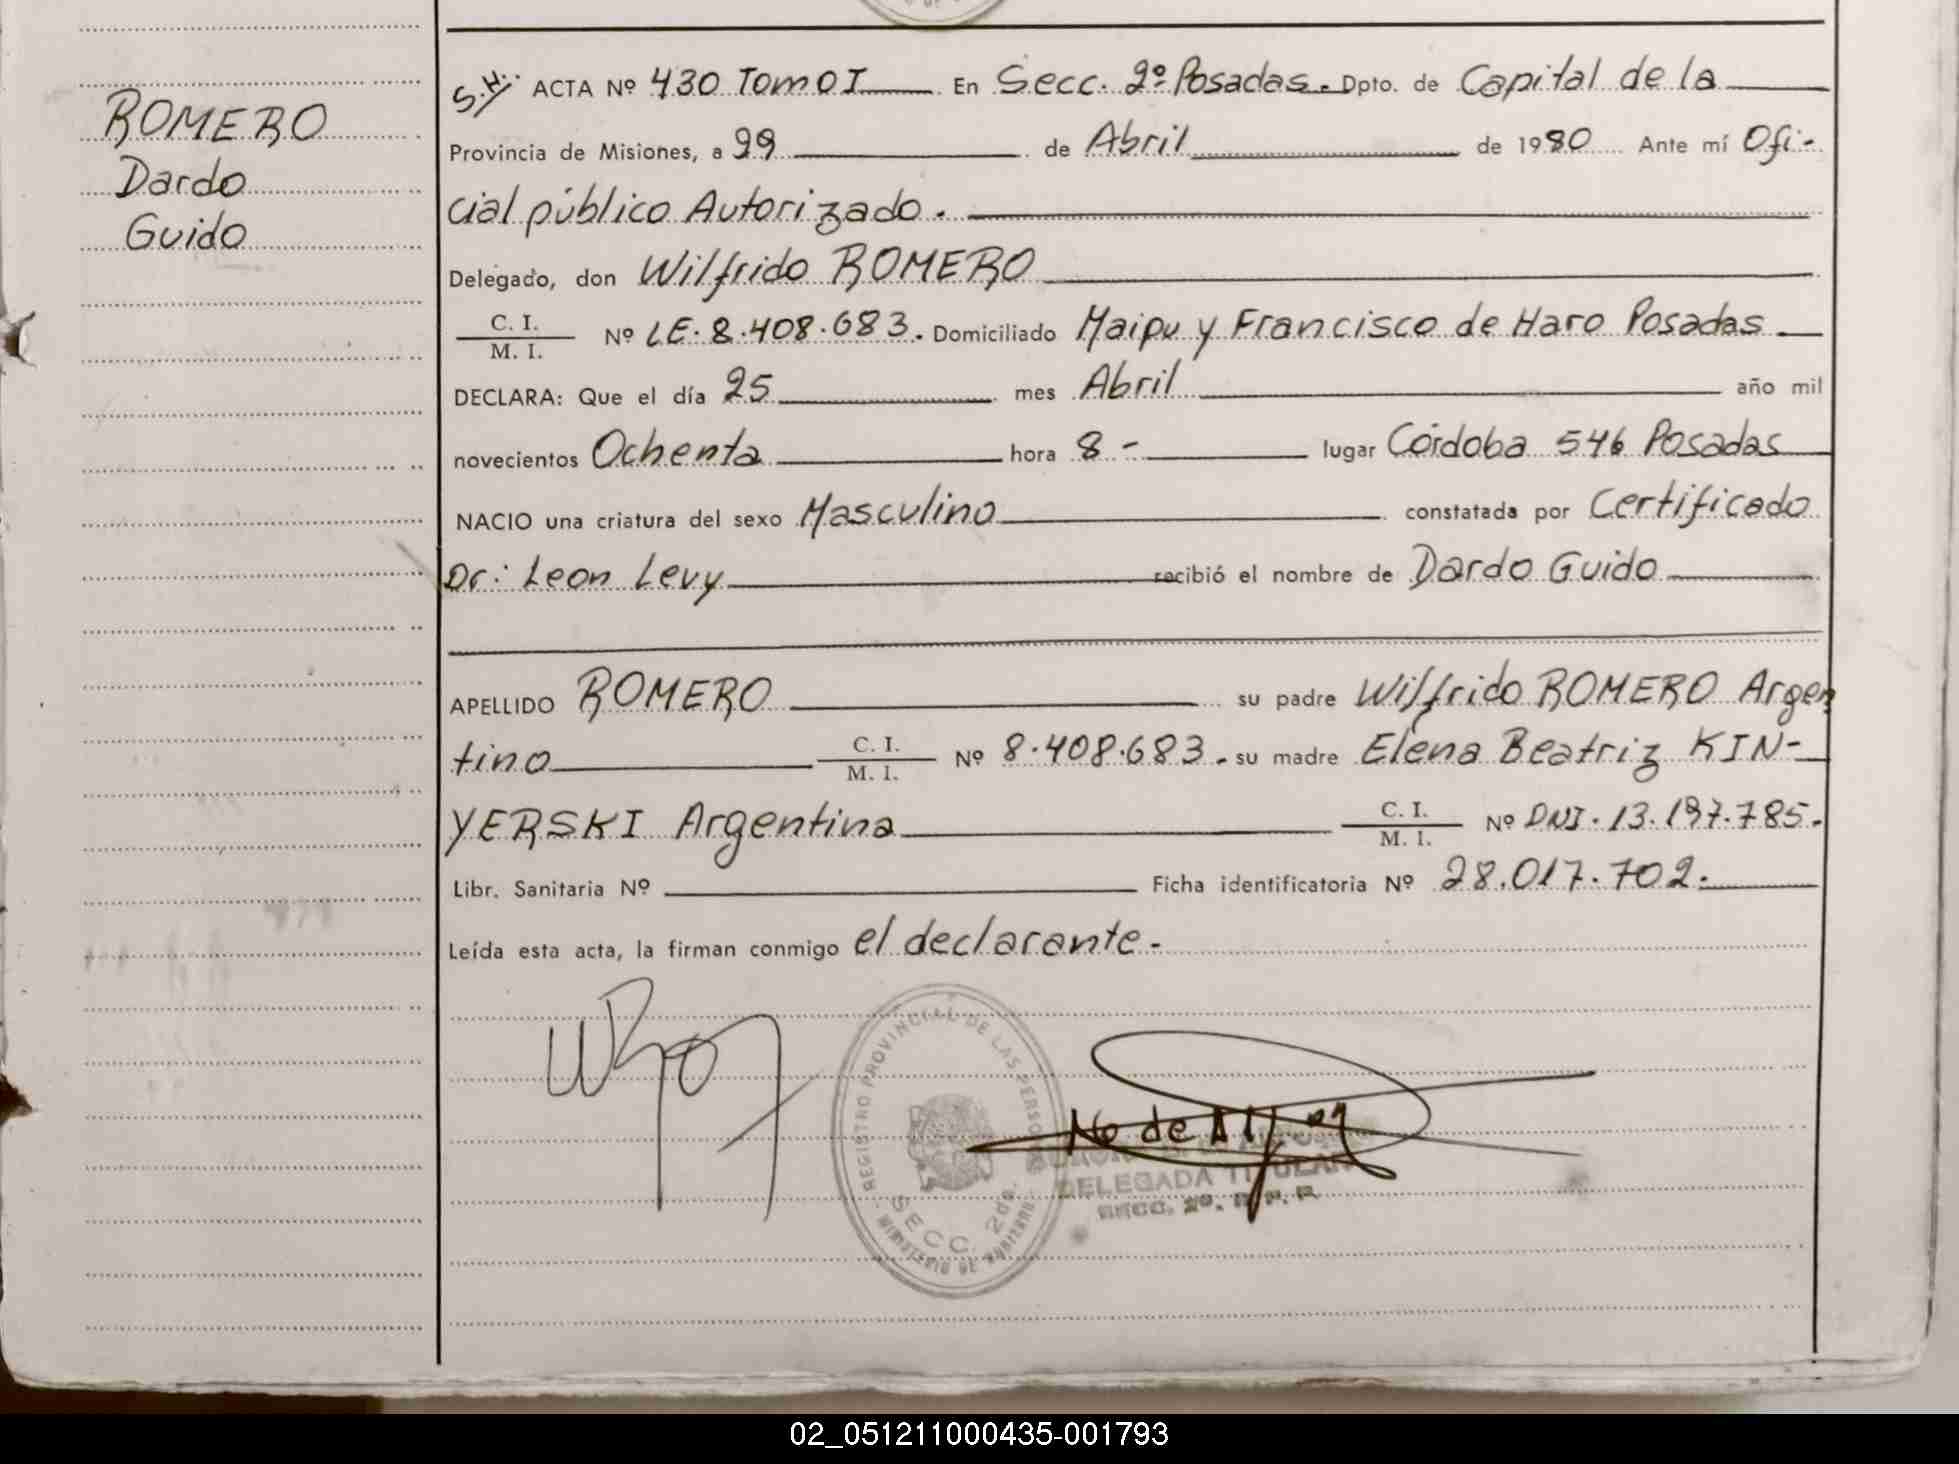 ROMERO
Dardo
Guido
S.H. ACTA Nº 430 Tomo I En Secc. 2º Posadas. Dpto. de Capital de la
Provincia de Misiones, a 29 de Abril de 1980 Ante mí Ofi-
cial público Autorizado.
Delegado, don Wilfrido ROMERO
C. I.
M. I.
Nº LE. 8.408.683. Domiciliado Maipu y Francisco de Haro Posadas
DECLARA: Que el día 25 mes Abril año mil
novecientos Ochenta hora 8 - lugar Córdoba 546 Posadas
NACIO una criatura del sexo Masculino constatada por Certificado
Dr: Leon Levy recibió el nombre de Dardo Guido
APELLIDO ROMERO su padre Wilfrido ROMERO Argen
tino C. I. Nº 8.408.683. su madre Elena Beatriz KIN-
M. I.
YERSKI Argentina C. I. Nº DNI. 13.197.785.
M. I.
Libr. Sanitaria Nº Ficha identificatoria Nº 28.017.702.
Leída esta acta, la firman conmigo el declarante.
REGISTRO PROVINCIAL DE LAS PERSONAS
SECC. 2da.
DELEGADA TITULAR
SECC. 2º. R. P. P.
02_051211000435-001793